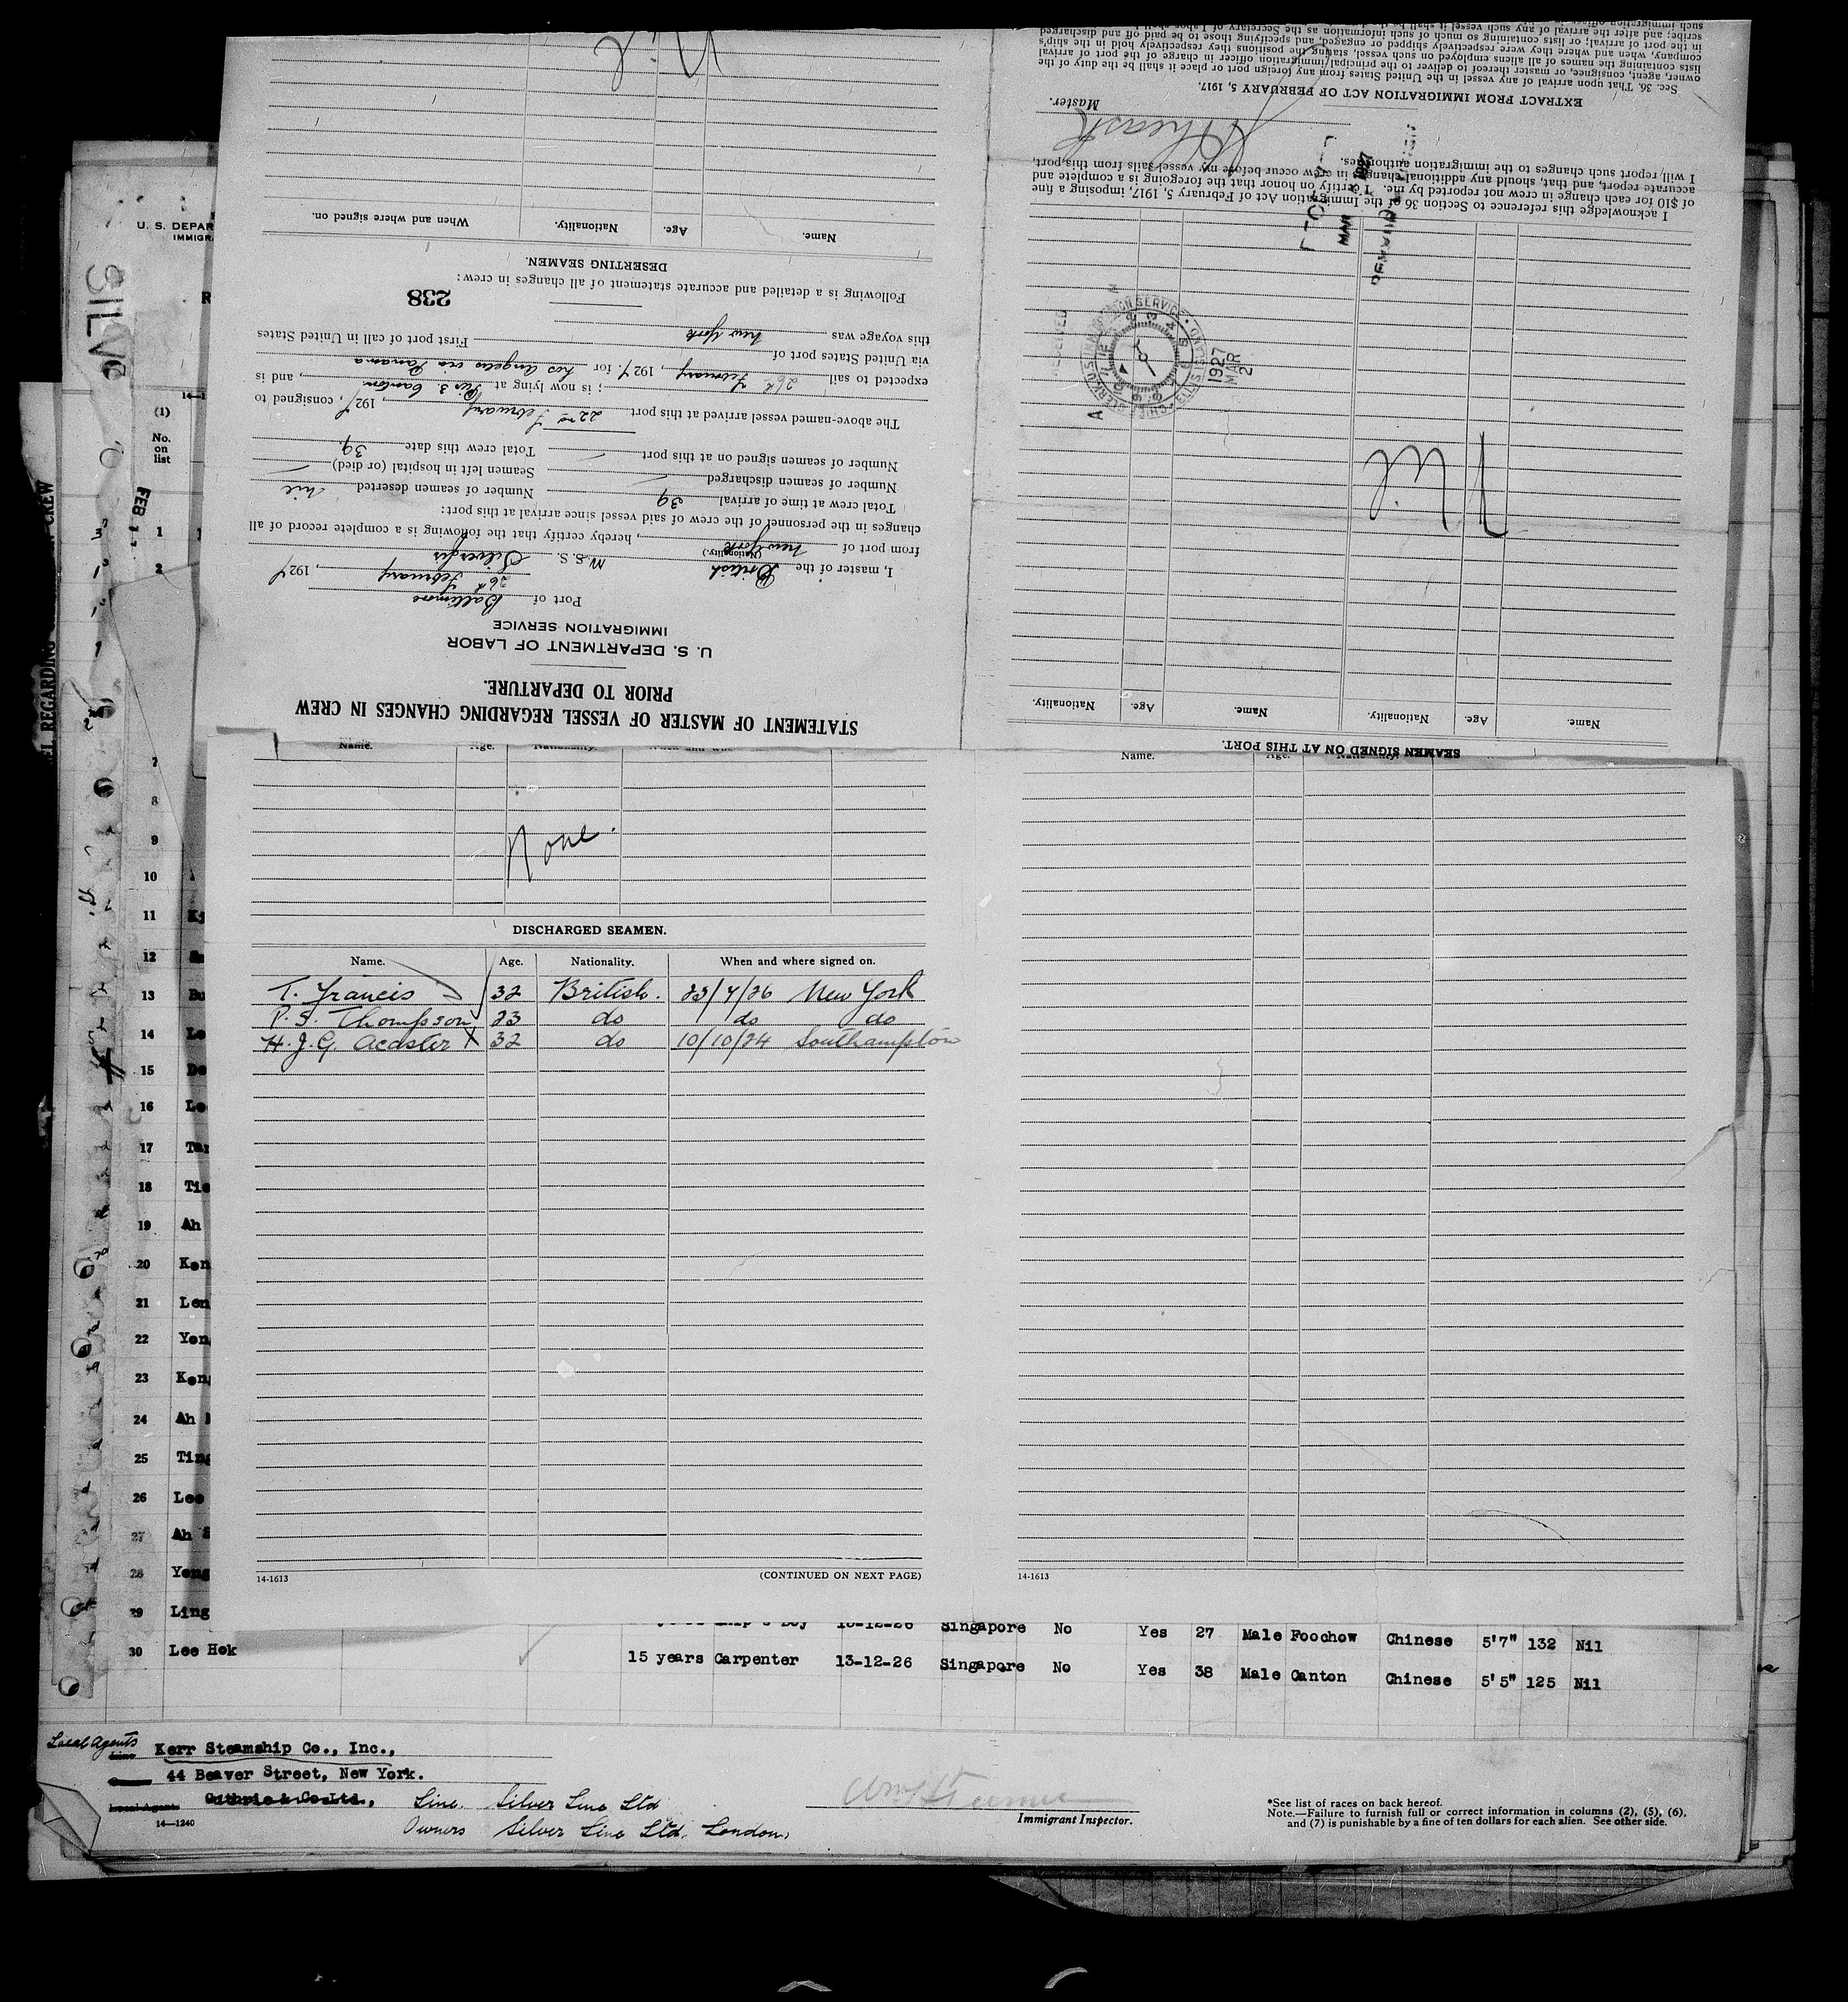 STATEMENT OF MASTER OF VESSEL REGARDING CHANGES IN CREW
PRIOR TO DEPARTURE.
U. S. DEPARTMENT OF LABOR
IMMIGRATION SERVICE
Port of Baltimore
26th February, 1927
I, master of the British M.S.S.
(Nationality.)
from port of New York, hereby certify that the following is a complete record of all
changes in the personnel of the crew of said vessel since arrival at this port:
Total crew at time of arrival 39 Number of seamen deserted nil
Number of seamen discharged Seamen left in hospital (or died)
Number of seamen signed on at this port Total crew this date 39
The above-named vessel arrived at this port 22nd February, 1927, consigned to
; is now lying at Pier 3 Canton, and is
expected to sail 26th February, 1927, for Los Angeles via Panama
via United States port of
this voyage was New York First port of call in United States
238
Following is a detailed and accurate statement of all changes in crew:
DESERTING SEAMEN.
Name. Age. Nationality. When and where signed on.
SEAMEN SIGNED ON AT THIS PORT.
Name. Age. Nationality. Name. Age. Nationality.
Nil
CHIEF CLERK U.S. IMMIGRATION SERVICE ELLIS ISLAND
1927 MAR 2
I acknowledge this reference to Section 36 of the Immigration Act of February 5, 1917, imposing a fine
of $10 for each change in crew not reported by me. I certify on honor that the foregoing is a complete and
accurate report, and that, should any additional changes in crew occur before my vessel sails from this port,
I will report such changes to the immigration authorities.
Master.
EXTRACT FROM IMMIGRATION ACT OF FEBRUARY 5, 1917.
Sec. 36. That upon arrival of any vessel in the United States from any foreign port or place it shall be the duty of the
owner, agent, consignee, or master thereof to deliver to the principal immigration officer in charge of the port of arrival
lists containing the names of all aliens employed on such vessel, stating the positions they respectively hold in the ship's
company, when and where they were respectively shipped or engaged, and specifying those to be paid off and discharged
in the port of arrival; or lists containing so much of such information as the Secretary of Labor shall
scribe; and after the arrival of any such vessel it shall be the
Name. Age. Nationality.
None.
DISCHARGED SEAMEN.
Name. Age. Nationality. When and where signed on.
T. Francis 32 British. 23/7/26 New York
P. S. Thompson 23 do do do
H. J. G. Acaster X 32 do 10/10/24 Southampton
14-1613 (CONTINUED ON NEXT PAGE)
Name. Age.
14-1613
U. S. DEPAR
IMMIGRA
SILVE
FEB
(1)
No.
on
list
1
2
7
8
9
10
11
12
13
14
15
16
17
18 Tie
19 Ah
20
21 Len
22
23
24 Ah
25
26 Lee
27 Ah
28 Yeng
29 Ling 10-12-26 Singapore No Yes 27 Male Foochow Chinese 5'7" 132 Nil
30 Lee Hok 15 years Carpenter 13-12-26 Singapore No Yes 38 Male Canton Chinese 5'5" 125 Nil
Local Agents Kerr Steamship Co., Inc.,
44 Beaver Street, New York.
Local Agent Guthrie & Co Ltd., Line. Silver Line Ltd
Owners Silver Line Ltd. London.
14—1240
Immigrant Inspector.
*See list of races on back hereof.
Note.—Failure to furnish full or correct information in columns (2), (5), (6),
and (7) is punishable by a fine of ten dollars for each alien. See other side.